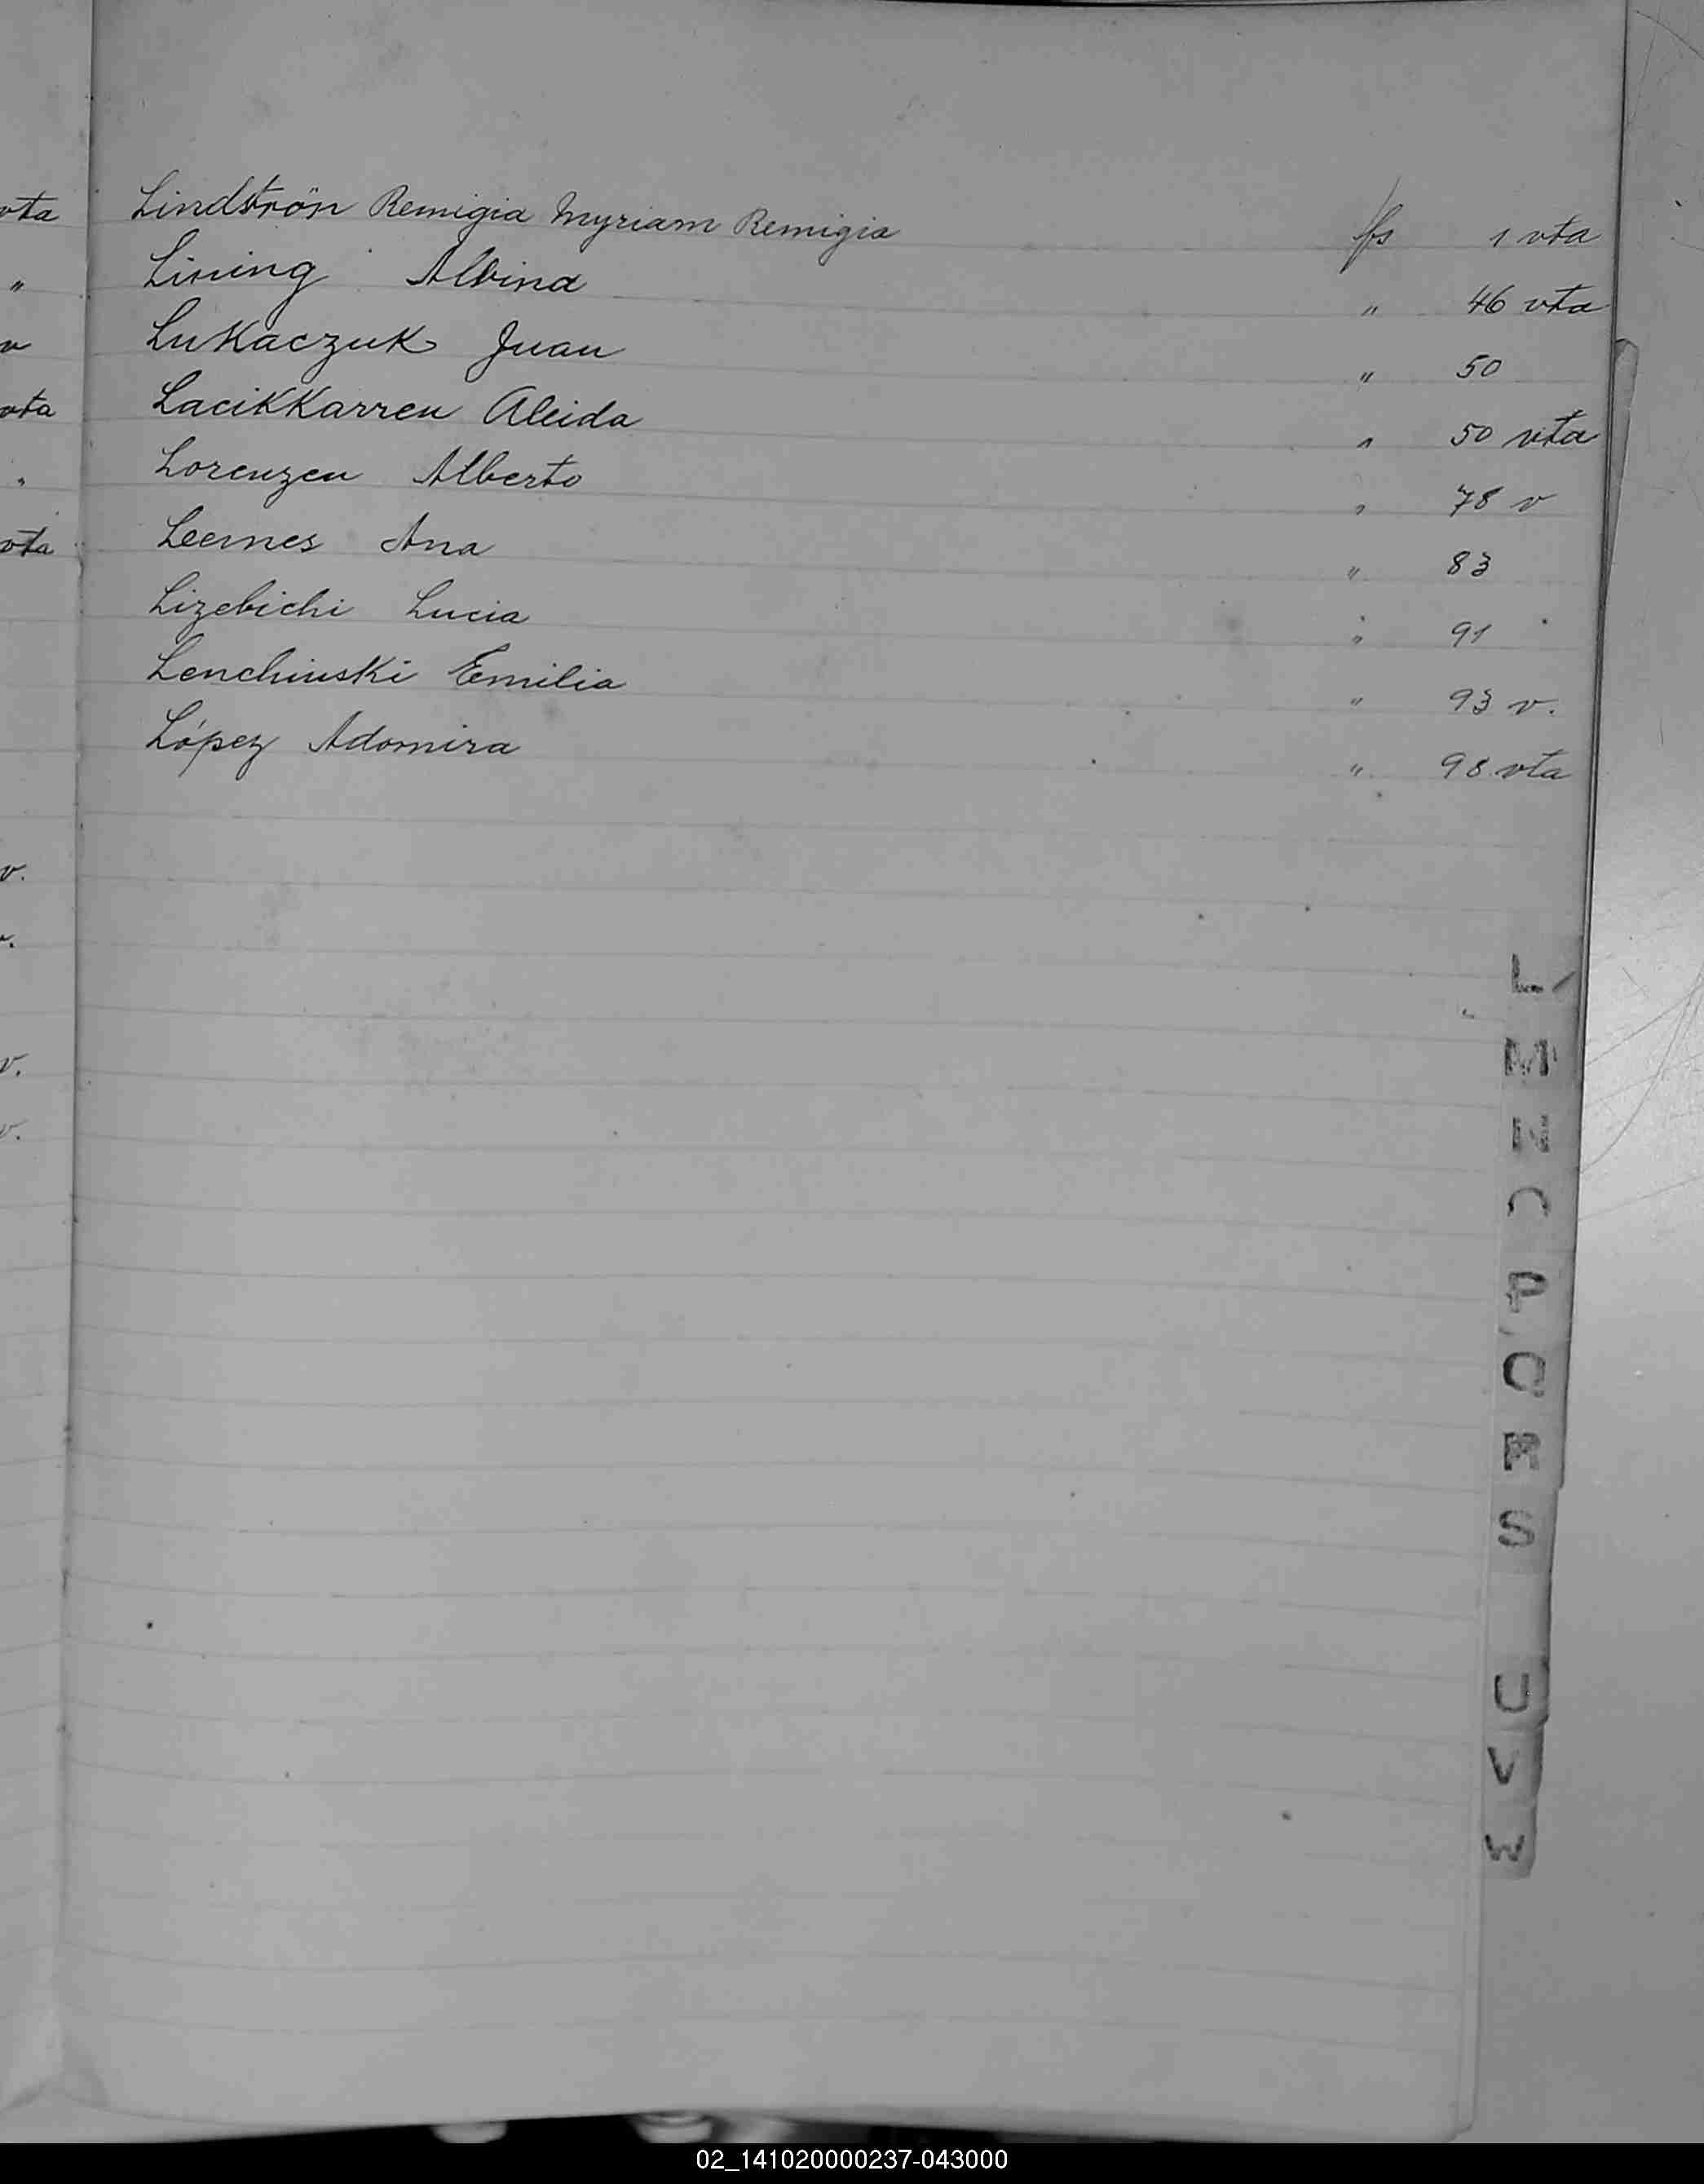 Lindströn Remigia Myriam Remigia fs 1 vta
Lining Albina " 46 vta
Lukaczuk Juan " 50
Lacikkarren Aleida " 50 vta
Lorenzen Alberto " 78 v
Leemes Ana " 83
Lizebichi Lucia " 91
Lenchinski Emilia " 93 v.
López Adomira " 98 vta
vta
"
v
vta
"
vta
v.
v.
v.
v.
L
M
N
O
P
Q
R
S
U
V
W
02_141020000237-043000